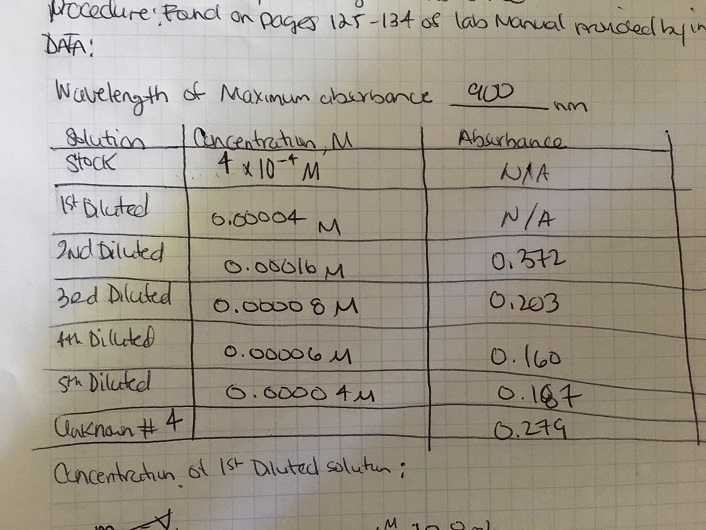 Procedure: Found on pages 125-134 of lab Manual provided by in
DATA:
Wavelength of Maximum absorbance 900 nm
Solution Concentration, M Absorbance
Stock 4 x 10⁻⁴ M N/A
1st Diluted 0.00004 M N/A
2nd Diluted 0.00016 M 0.372
3rd Diluted 0.00008 M 0.203
4th Diluted 0.00006 M 0.160
5th Diluted 0.00004 M 0.187
Unknown # 4 0.279
Concentration of 1st Diluted solution: